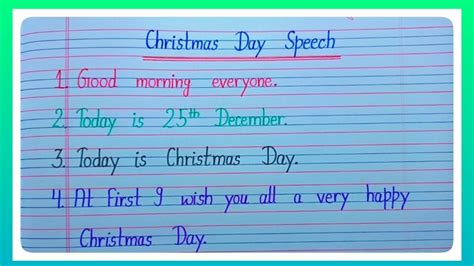 Christmas Day Speech
1. Good morning everyone.
2. Today is 25th December.
3. Today is Christmas Day.
4. At first I wish you all a very happy
Christmas Day.